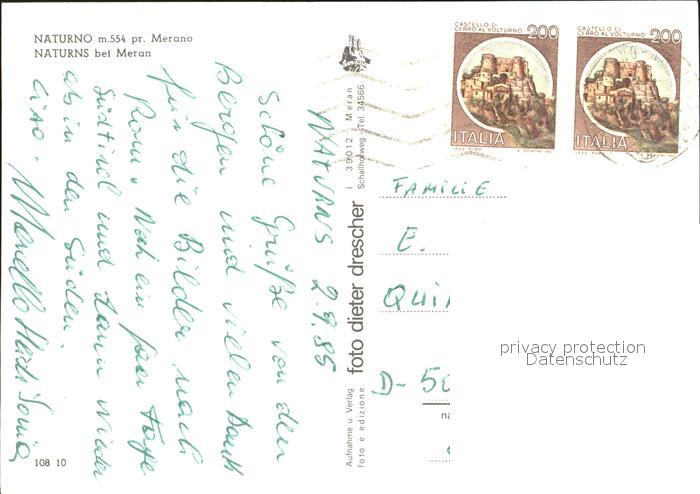 NATURNO m.554 pr. Merano
NATURNS bei Meran
NATURNS 2.9.85
Schöne Grüße von den
Bergen und vielen Dank
für die Bilder nach
Rom. Noch ein paar Tage
Südtirol und dann wieder
ab in den Süden.
Ciao. Marcello Heidi Sonia
108 10
Aufnahme u. Verlag
foto e edizione
foto dieter drescher
I 39012 Meran
Schallhofweg - Tel. 34566
CASTELLO DI
CERRO AL VOLTURNO 200
ITALIA
CASTELLO DI
CERRO AL VOLTURNO 200
ITALIA
FAMILIE
E.
QUI
D- 50
privacy protection
Datenschutz